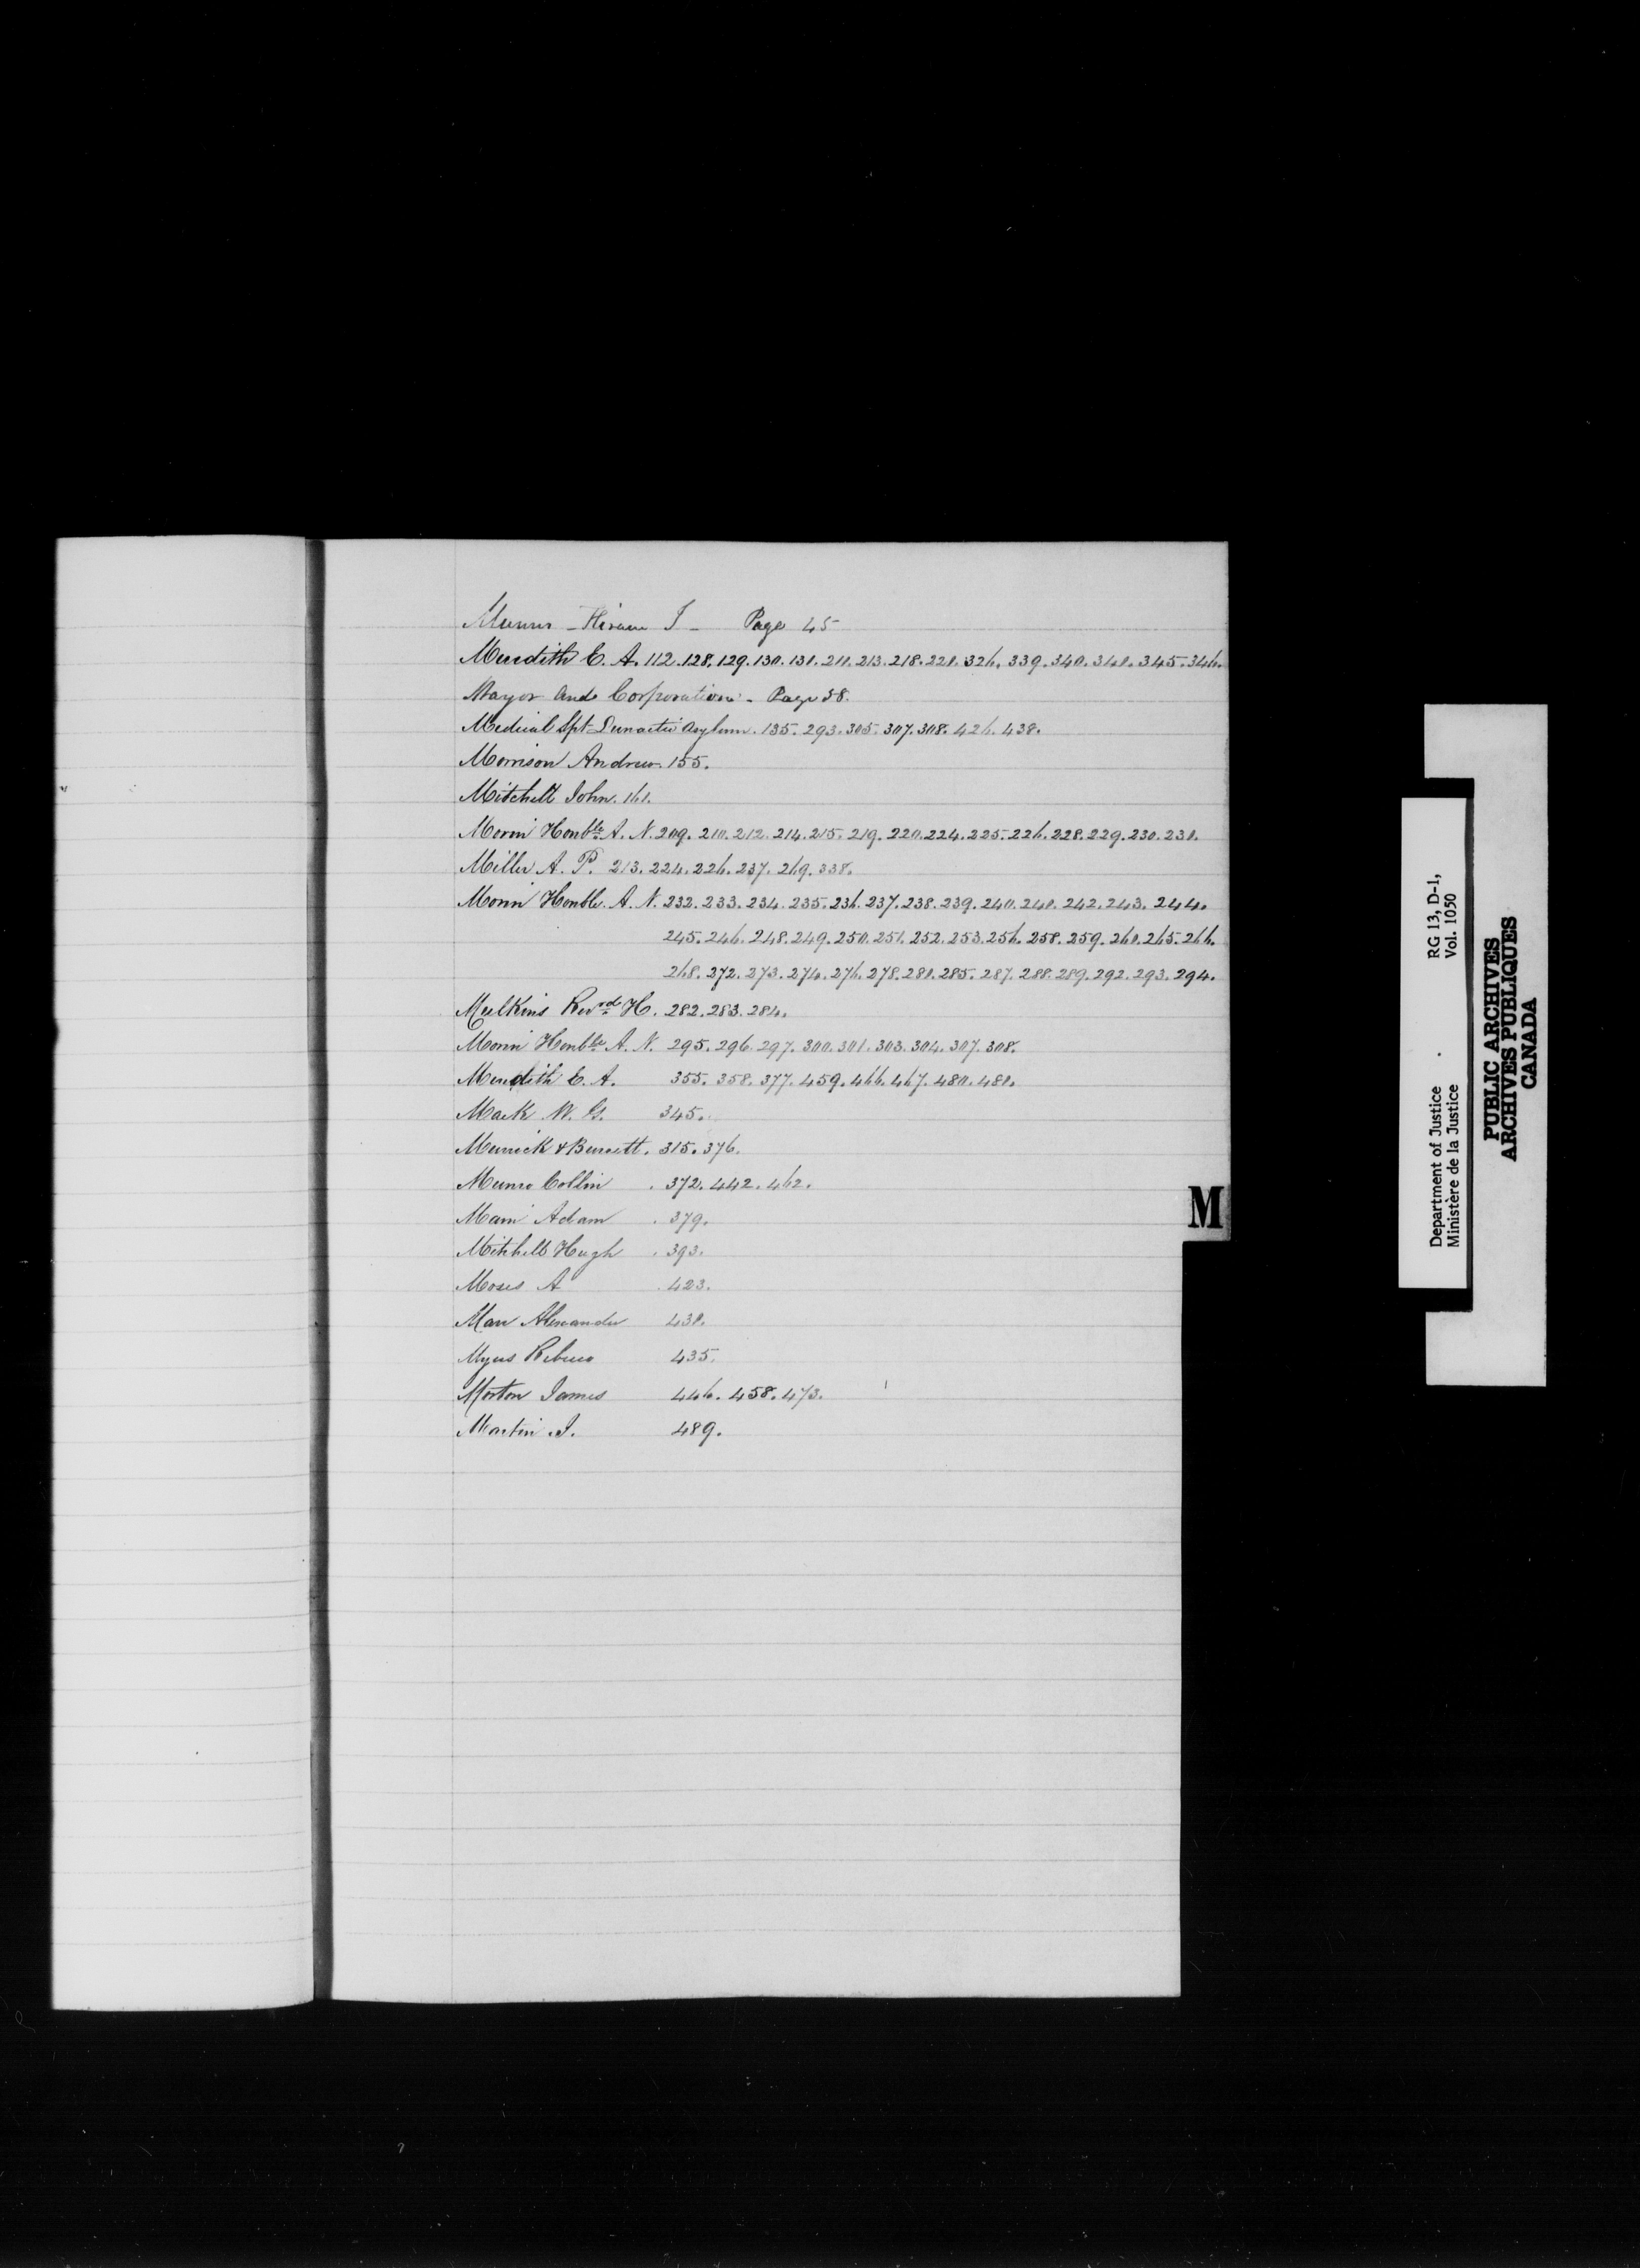 Munro - Hiram J - Page 45
Meredith E. A. 112. 128. 129. 130. 131. 211. 213. 218. 221. 326. 339. 340. 341. 345. 346.
Mayor and Corporation - Page 38.
Medical Spt Lunatic Asylum. 135. 293. 305. 307. 308. 426. 438.
Morrison Andrew. 155.
Mitchell John. 161.
Morin Honble A. N. 209. 210. 212. 214. 215. 219. 220. 224. 225. 226. 228. 229. 230. 231.
Miller A. P. 213. 224. 226. 237. 269. 338.
Morin Honble. A. N. 232. 233. 234. 235. 236. 237. 238. 239. 240. 241. 242. 243. 244.
245. 246. 248. 249. 250. 251. 252. 253. 256. 258. 259. 261. 265. 266.
268. 272. 273. 274. 276. 278. 281. 285. 287. 288. 289. 292. 293. 294.
Mulkins Revrd H. 282. 283. 284.
Morin Honble A. N. 295. 296. 297. 300. 301. 303. 304. 307. 308.
Meredith E. A. 355. 358. 377. 459. 466. 467. 480. 481.
Mack W. G. 345.
Merrick & Burnett. 315. 376.
Munro Collin . 372. 442. 462.
Main Adam . 379.
Mitchell Hugh . 393.
Moses A . 423.
Marr Alexander 431.
Myers Rebecca 435.
Morton James 446. 458. 473.
Martin J. 489.
M
Department of Justice RG 13, D-1,
Ministère de la Justice Vol. 1050
PUBLIC ARCHIVES
ARCHIVES PUBLIQUES
CANADA